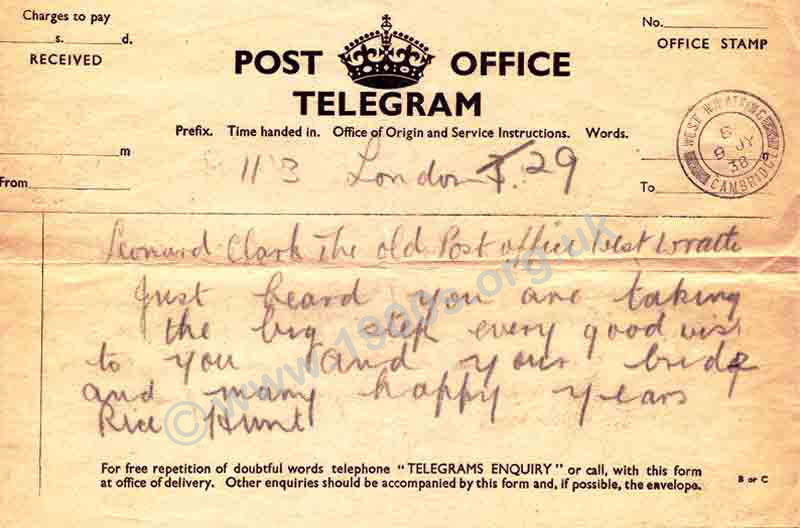 Charges to pay
s. d.
RECEIVED
No.
OFFICE STAMP
POST OFFICE
TELEGRAM
Prefix. Time handed in. Office of Origin and Service Instructions. Words.
m
From
To
11 3 London T. 29
WEST WRATTING
8 JY
38
CAMBRIDGE
Leonard Clark The old Post office West Wratti
Just heard you are taking
the big step every good wish
to you and your bride
and many happy years
Rice Hunt
© www.1900s.org.uk
For free repetition of doubtful words telephone "TELEGRAMS ENQUIRY" or call, with this form
at office of delivery. Other enquiries should be accompanied by this form and, if possible, the envelope.
B or C